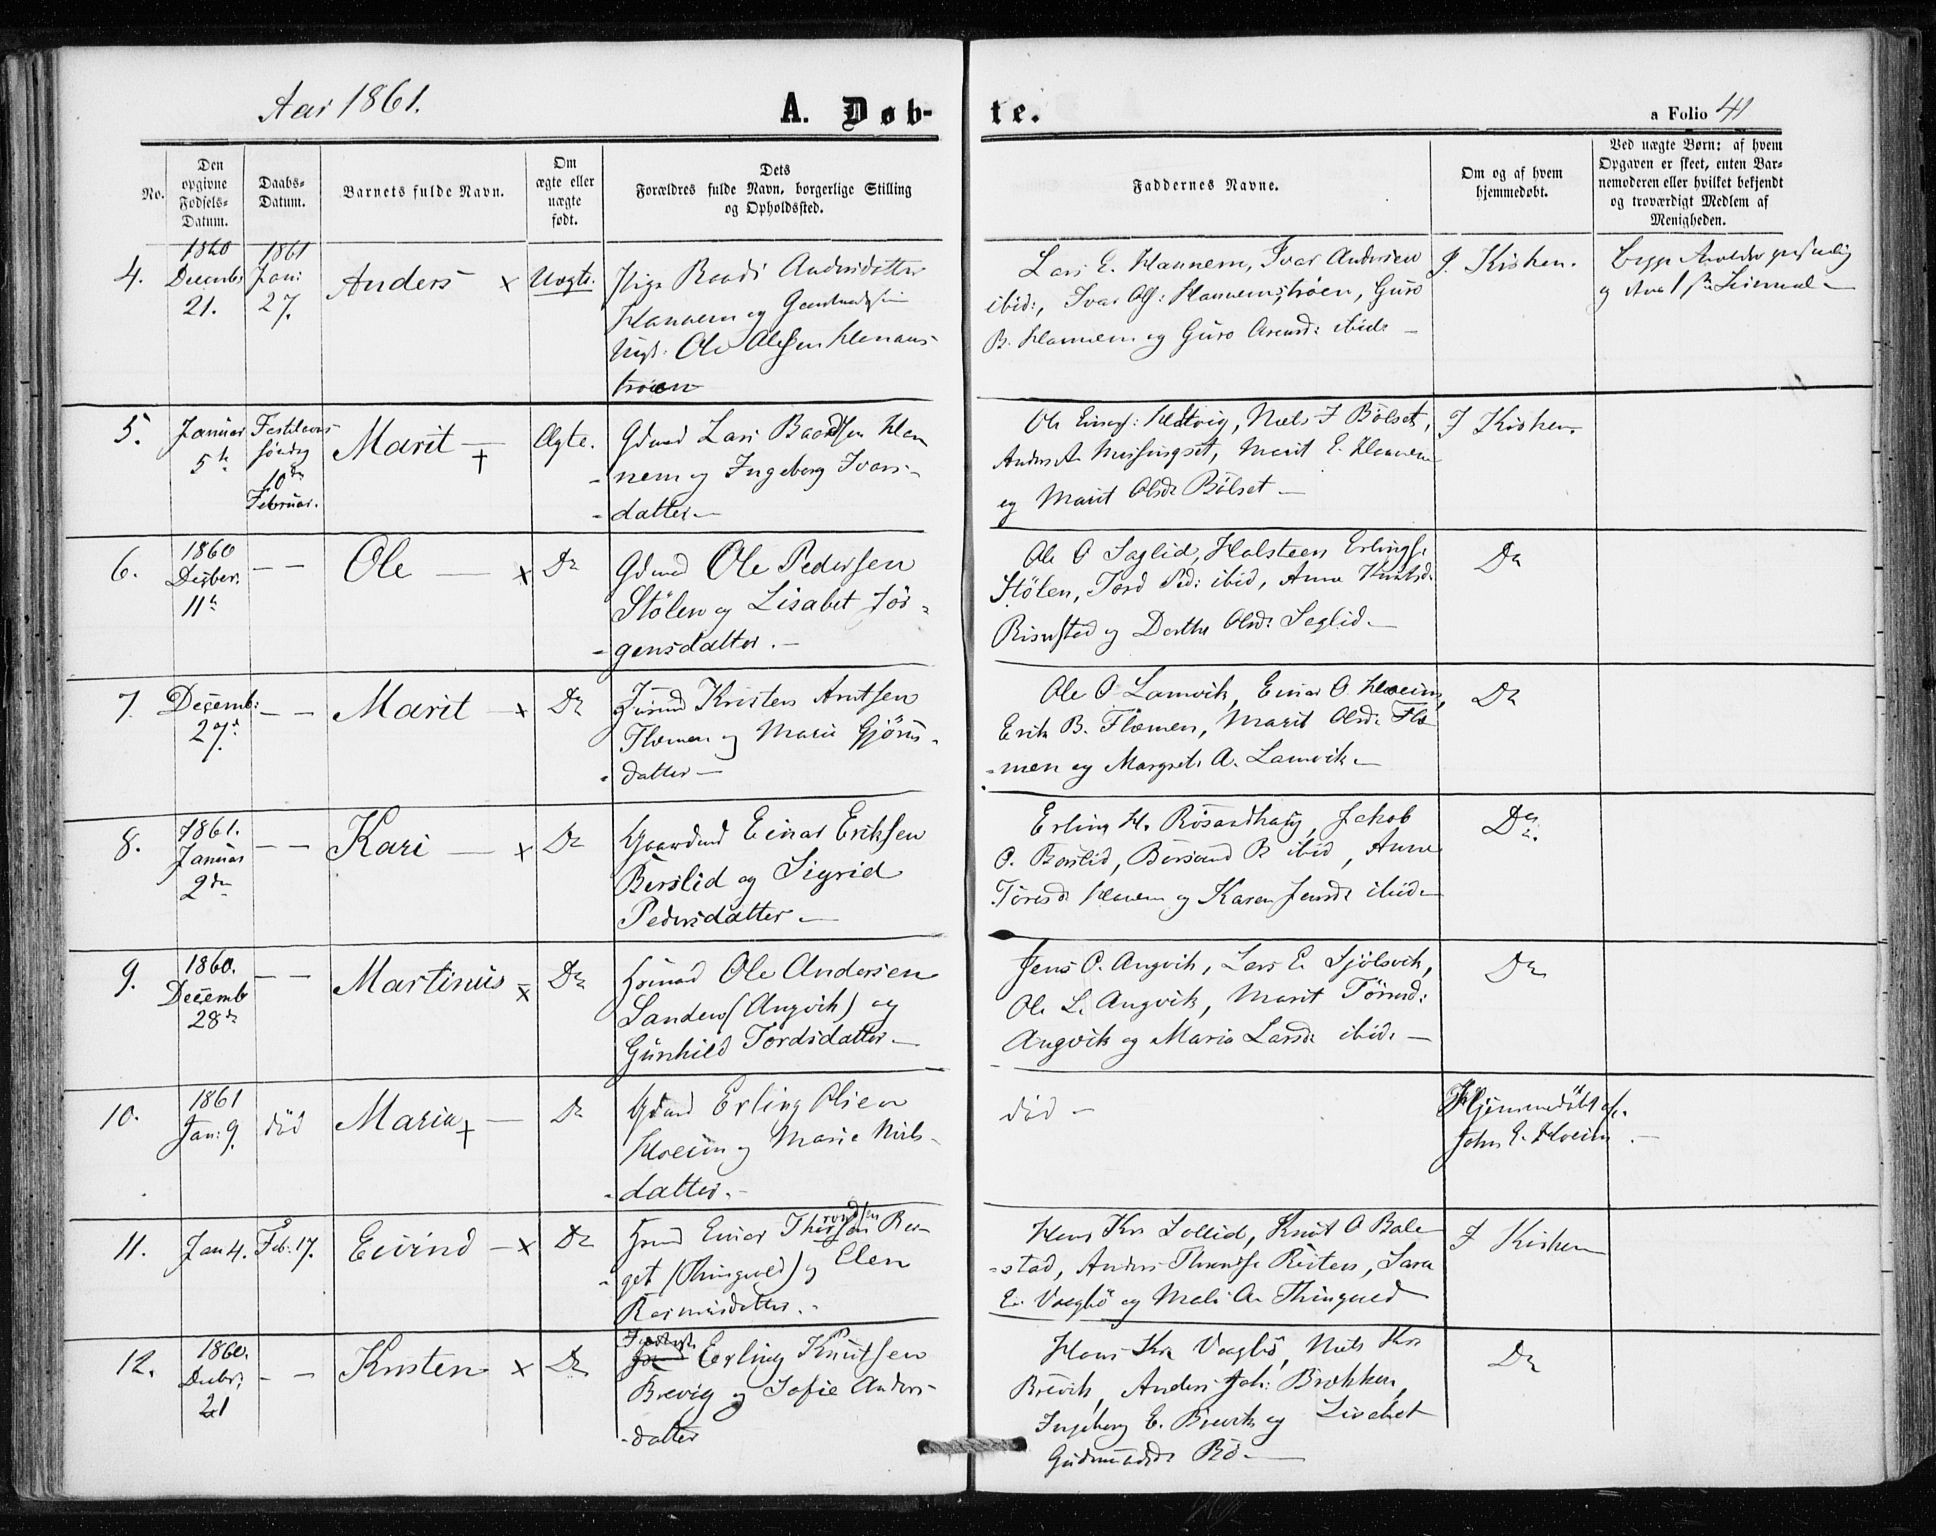 Aar 1861.
A. Døb-
te.
a Folio 41
No.
Den
opgivne
Fødsels-
Datum.
Daabs-
Datum.
Barnets fulde Navn.
Om
ægte eller
uægte
født.
Dets
Forældres fulde Navn, borgerlige Stilling
og Opholdssted.
Faddernes Navne.
Om og af hvem
hjemmedøbt.
Ved uægte Børn: af hvem
Opgaven er skeet, enten Bar-
nemoderen eller hvilket bekjendt
og troværdigt Medlem af
Menigheden.
4.
1860
Decembr
21.
1861
Jan:
27.
Anders x
Uægte.
Pige
Hannem og
Ungk: Ole Olsen Hanems-
trøen
Lars E. Hannem, Ivar Andersen
ibid:, Ivar Ols: Hannemstrøen, Guro
B. Hannem og Guro ibid: —
I Kirken.
5.
Januar
5te
Fastelavns
søndag
10de
Februar.
Marit — †
Ægte.
Gdmd Lars Baardsen Han
nem og Ingeborg Ivars-
-datter —
Niels J Bølset,
Marit E. Hannem
og Marit Olsdr Bølset —
I Kirken.
6.
1860
Decbr:
11te
— —
Ole — x
Do
Gdmd Ole Pedersen
Stölen og Lisabet Jör-
-gensdatter. —
Ole O Saglid, Halsteen Erlings:
Stölen, Tord Ped: ibid, Anne Knutsd:
og Dorthe Olsdr Saglid —
Do
7.
Decemb:
27de
— —
Marit — x
Do
Kristen Arntsen
Flemmen og Marie Gjörs-
-datter —
Ole O Lamvik, Einar O Hoeim,
Erik B. Flemmen, Marit Olsdr Flem-
-men og Margrete A. Lamvik —
Do
8.
1861.
Januar
2den
— —
Kari — x
Do
Gaardmd Einar Eriksen
Berslid og Sigrid
Pedersdatter —
Erling H. Rösandhaug, Jakob
O. Berslid, ibid, Anne
Hanem og Karen Jensdr ibid —
Do
9.
1860.
Decemb
28de
— —
Martinus x
Do
Ole Andersen
Sanden (Angvik) og
Gunhild Tordsdatter —
Jens O. Angvik, Lars E. Sjölsvik,
Ole L. Angvik, Marit
Angvik og Maria Larsdr ibid. —
Do
10.
1861
Jan: 9.
död
Maria † —
Do
Gdmd Erling Olsen
Hoeim og Marie Niels-
-datter. —
död —
Hjemmedöbt af
John E. Hoeim —
11.
Jan 4.
Feb: 17.
Eivind — x
Do
Einar
-get (Thingvold) og Elen
Rasmusdatter. —
Hans Kr Sollid, Knut O Bale-
-stad, Anders Reiten, Sara
E. Vaagbö og Mali A. Thingvold
I Kirken
12.
1860.
Decbr:
21
— —
Kristen x
Do
Erling Knutsen
Brevig og Sofie Anders-
-datter
Hans Kr Vaagbö, Niels Kr
Brevik, Anders Joh: Brekken,
Ingeborg E. Brevik og Lisabet
Gudmundsdr Bö —
Do